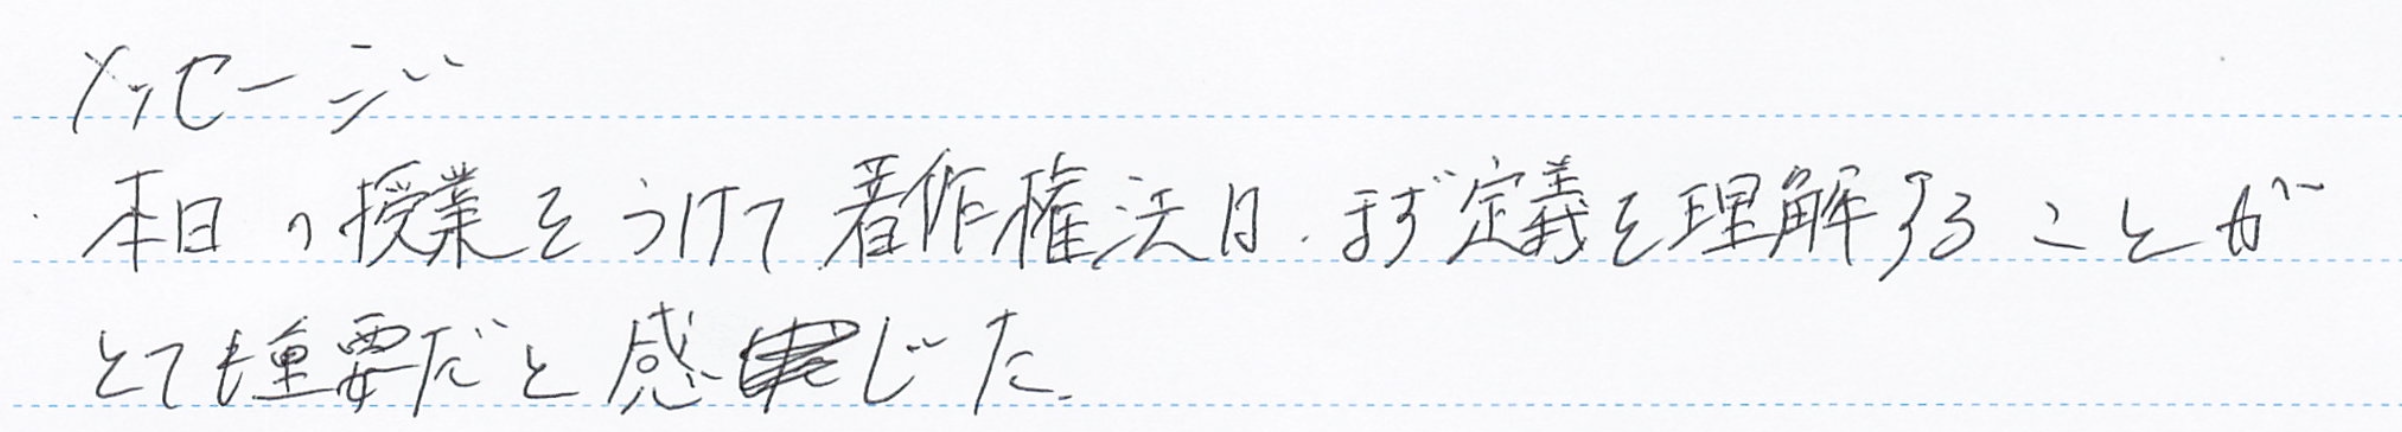 メッセージ
本日の授業をうけて著作権法は、まず定義を理解することが
とても重要だと感じた。